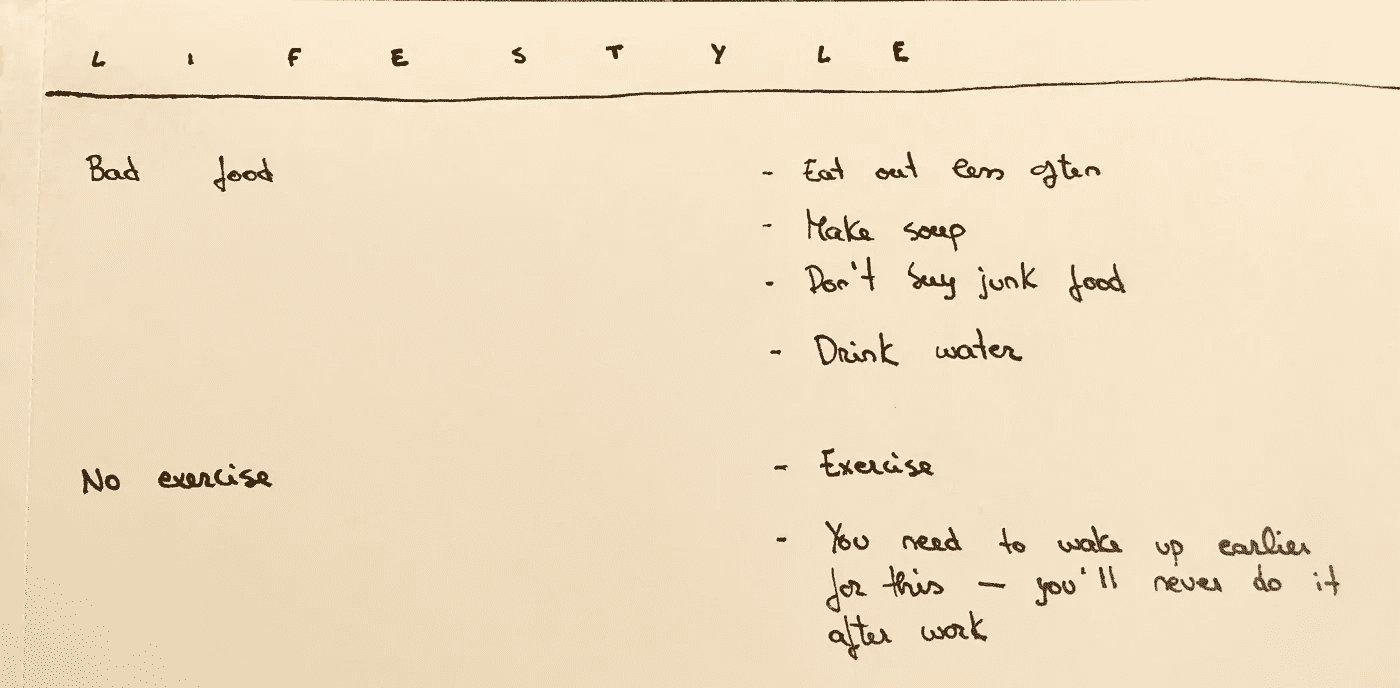 L I F E S T Y L E
Bad food - Eat out less often
- Make soup
- Don't buy junk food
- Drink water
No exercise - Exercise
- You need to wake up earlier
for this — you'll never do it
after work